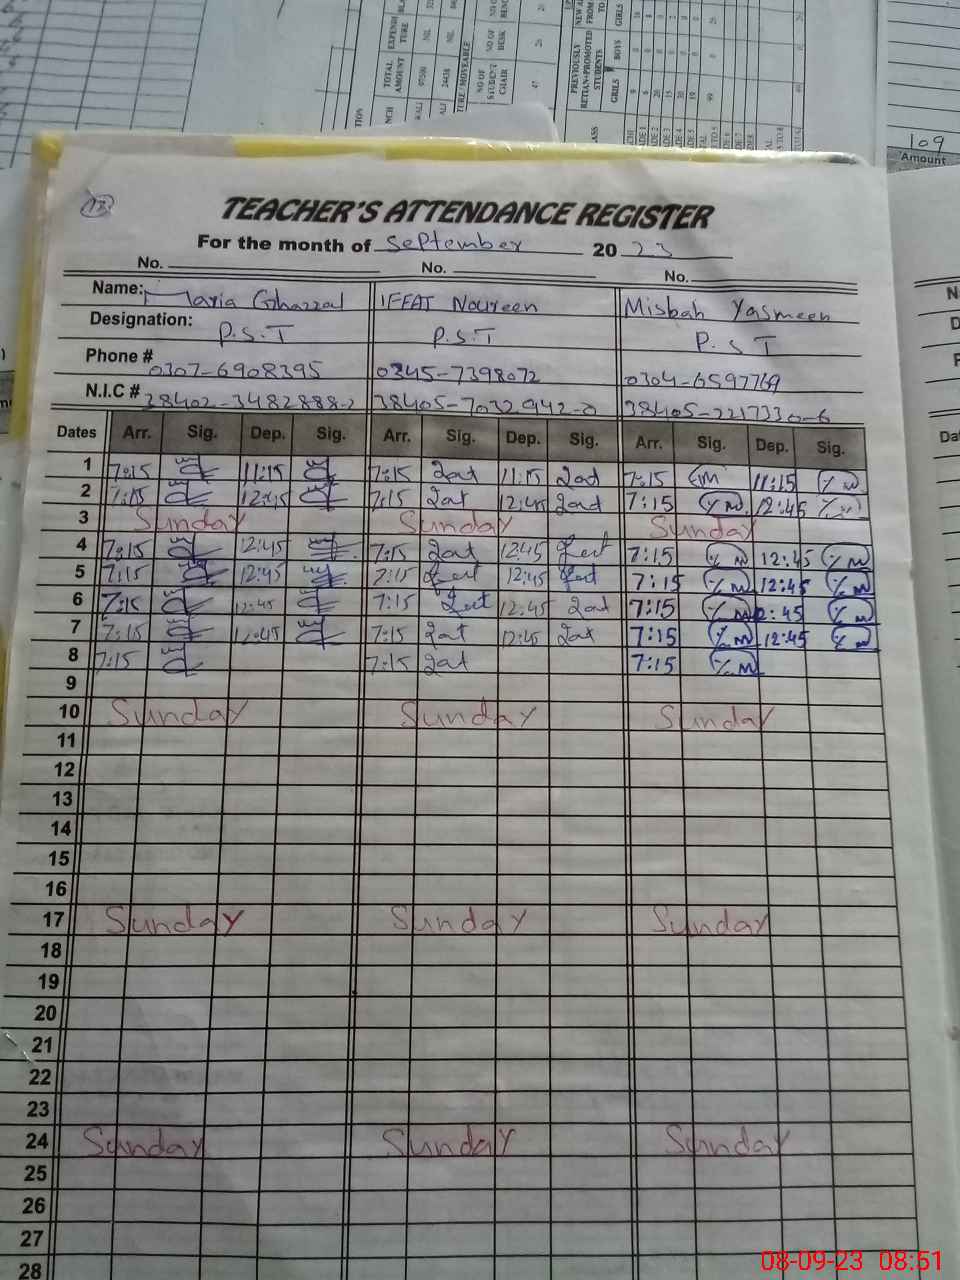 109
Amount
TOTAL AMOUNT
EXPENDI TURE
NO OF STUDENT CHAIR
NO OF DESK
PREVIOUSLY RETIAN+PROMOTED STUDENTS
GIRLS BOYS GIRLS
17
TEACHER'S ATTENDANCE REGISTER
For the month of September 2023
No. No. No.
Name: Maria Ghazzal IFFAT Noureen Misbah Yasmeen
Designation: P.S.T P.S.T P.S.T
Phone # 0307-6908395 0345-7398072 0304-6597769
N.I.C # 38402-3482888-2 38405-7032942-0 38405-2217330-6
Dates Arr. Sig. Dep. Sig. Arr. Sig. Dep. Sig. Arr. Sig. Dep. Sig.
1 7:15 11:15 7:15 11:15 7:15 11:15
2 7:15 12:45 7:15 12:45 7:15 12:45
3 Sunday Sunday Sunday
4 7:15 12:45 7:15 12:45 7:15 12:45
5 7:15 12:45 7:15 12:45 7:15 12:45
6 7:15 12:45 7:15 12:45 7:15 2:45
7 7:15 12:45 7:15 12:45 7:15 12:45
8 7:15 7:15 7:15
9
10 Sunday Sunday Sunday
11
12
13
14
15
16
17 Sunday Sunday Sunday
18
19
20
21
22
23
24 Sunday Sunday Sunday
25
26
27
28
08-09-23 08:51